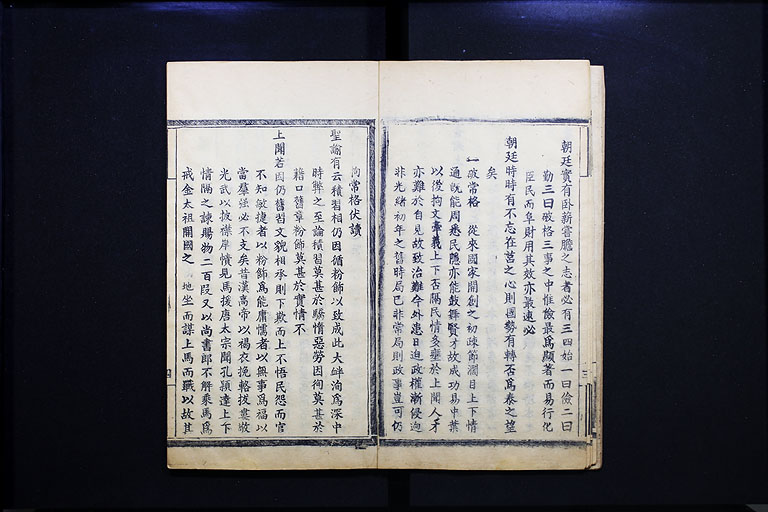 朝廷實有卧薪嘗膽之志者必有三四始一曰儉二曰
勤三曰破格三事之中惟儉最為顯著而易行化
臣民而阜財用其效亦最速必
朝廷時時有不忘在莒之心則國勢有轉否為泰之望
矣
一破常格 從來國家開創之初疎節濶目上下情
通既能周悉民隱亦能鼓舞賢才故成功易中葉
以後拘文牽義上下否隔民情多壅於上聞人才
亦難於自見故致治難今外患日迫政權漸侵迥
非光緒初年之舊時局已非常局則政事豈可仍
常格伏讀
聖諭有云積習相仍因循粉飾以致成此大衅洵為深中
時弊之至論積習莫甚於驕惰惡勞因徇莫甚於
藉口舊章粉飾莫甚於實情不
上聞若因仍舊習文貌相承則下欺而上不悟民怨而官
不知敏捷者以粉飾為能庸懦者以無事為福以
當羣強必不支矣昔漢高帝以褐衣挽輅拔婁敬
光武以披襟岸幘見馬援唐太宗聞孔穎達上下
情隔之諫賜物二百段又以尚書郎不解乘馬為
戒金太祖開國之 地坐而謀上馬而戰以故其
三
四